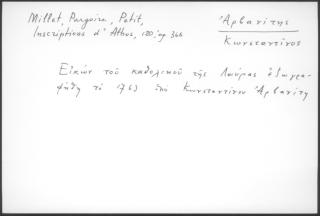 Millet, Pargoire, Petit,
Inscriptions d'Athos, 120, ἀρ. 366
Ἀρβανίτης
Κωνσταντῖνος
Εἰκὼν τοῦ καθολικοῦ τῆς Λαύρας ἐζωγρα-
φήθη τὸ 1763 ὑπὸ Κωνσταντίνου Ἀρβανίτη